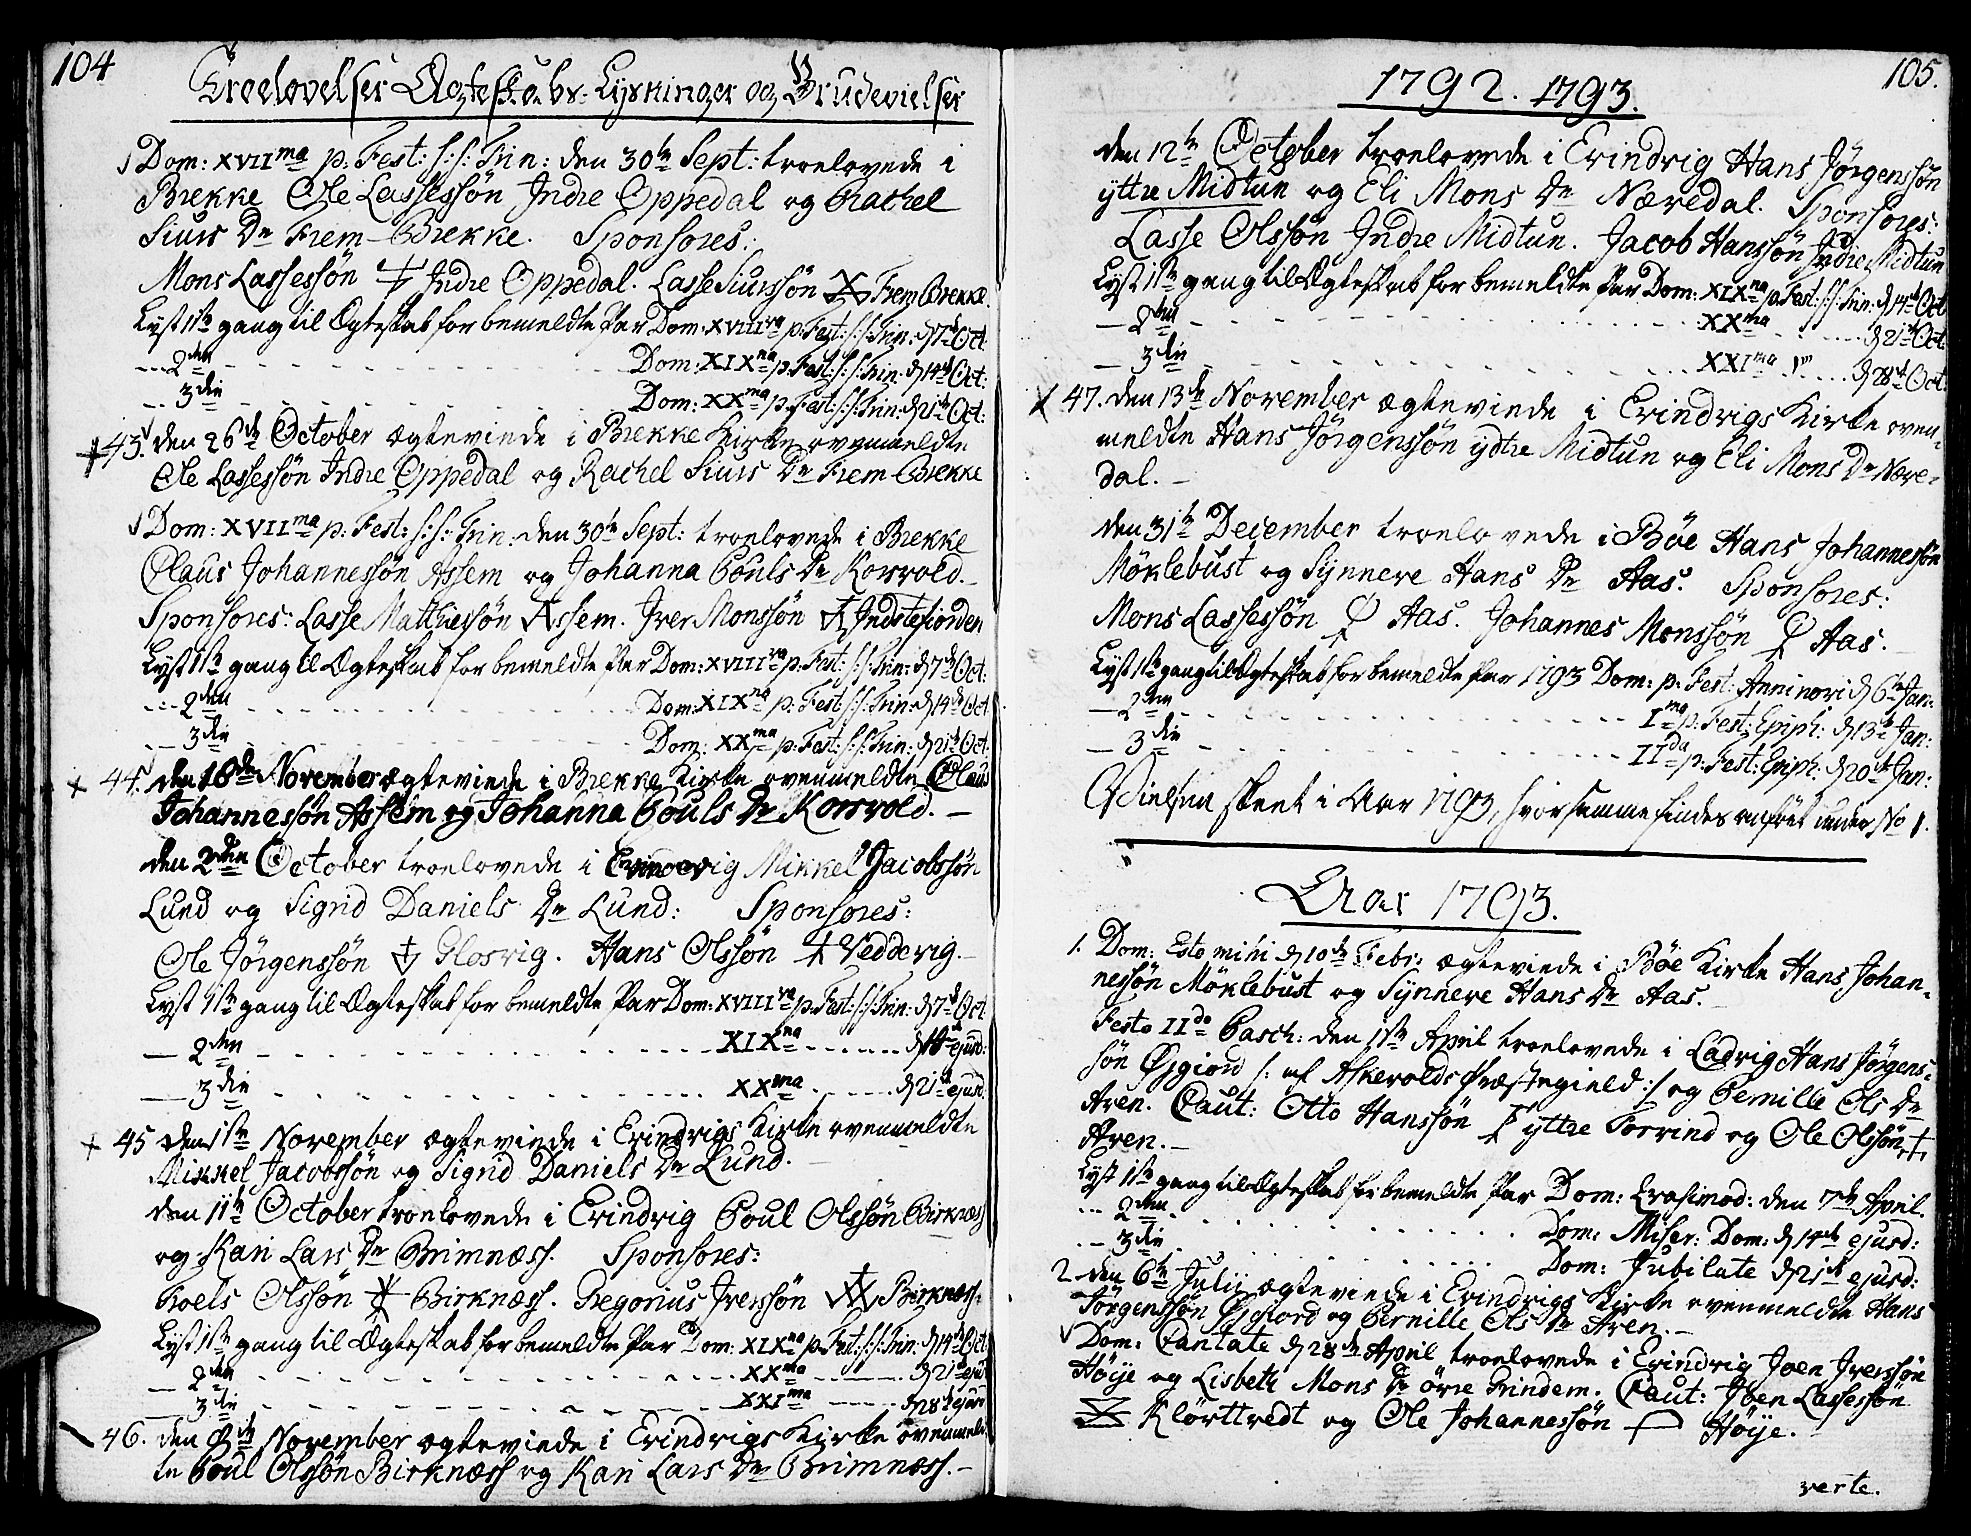 104
Troelovelser Ægteskabs-Lysninger og Brudevielser
Dom: XVII ma p: Fest: s: s: Trin: den 30te Sept: troelovede i
Brekke Ole Lassessøn Indre Oppedal og Rachel
Siurs Dr Frem-Brekke. Sponsores:
Mons Lassessøn Indre Oppedal. Lasse Siurssøn Frem Brekke.
Lyst 1ste gang til Ægteskab for bemeldte Par Dom: XVIII va p: Fest: s: s: Trin: d 7de Oct:
2den Dom: XIX na p: Fest: s: s: Trin: d 14de Oct:
3die Dom: XX ma p: Fest: s: s: Trin: d 21de Oct:
43. den 26de October ægteviede i Brekke Kirke ovenmeldte
Ole Lassessøn Indre Oppedal og Rachel Siurs Dr Frem Brekke
Dom: XVII ma p: Fest: s: s: Trin: den 30te Sept: troelovede i Brekke
Claus Johannessøn Assem og Johanna Pouls Dr Korsvold.
Sponsores: Lasse Matthiessøn Assem. Iver Monssøn Indrefiorden
Lyst 1ste gang til Ægteskab for bemeldte Par Dom: XVIII va p: Fest: s: s: Trin: d 7de Oct:
2den Dom: XIX na p: Fest: s: s: Trin: d 14de Oct
3die Dom: XX ma p: Fest: s: s: Trin: d 21de Oct:
44. den 16de November ægteviede i Brekke Kirke ovenmeldte Claus
Johannessøn Assem og Johanna Pouls Dr Korsvold. –
den 2den October troelovede i Evindvig Mikkel Jacobssøn
Lund og Sigrid Daniels Dr Lund: Sponsores:
Ole Jørgenssøn Glosvig. Hans Olssøn Nedrevig. –
Lyst 1ste gang til Ægteskab for bemeldte Par Dom: XVIII va p: Fest: s: s: Trin: d 7de Oct:
2den XIX na d 14de ejusd:
3die XX ma d 21de ejusd:
45 den 1ste November ægteviede i Evindvigs Kirke ovenmeldte
Mikkel Jacobssøn og Sigrid Daniels Dr Lund. –
den 11te October troelovede i Evindvig Poul Olssøn Birknæss
og Kari Lars Dr Brimnæss. Sponsores:
Roels Olssøn Birknæss. Gregorius Iverssøn Birknæss:
Lyst 1ste gang til Ægteskab for bemeldte Par Dom: XIX na p: Fest: s: s: Trin: d 14de Oct:
2den XX ma d 21de ejusd
3die XXI ma d 28de ejusd
46. den November ægteviede i Evindvigs Kirke ovenmeld-
te Poul Olssøn Birknæss og Kari Lars Dr Brimnæss. –
1792. 1793.
105.
den 12te October troelovede i Evindvig Hans Jørgenssøn
yttre Midtun og Eli Mons Dr Næredal. Sponsores:
Lasse Olssøn Indre Midtun. Jacob Hanssøn Indre Midtun
Lyst 1ste gang til Ægteskab for bemeldte Par Dom: XIX na p: Fest: s: s: Trin: d 14de Oct
2den XX ma d 21de Oct:
3die XXI ma d 28de Oct:
47. den 13de November ægteviede i Evindvigs Kirke oven-
meldte Hans Jørgenssøn ydtre Midtun og Eli Mons Dr Nære-
dal. –
den 31te December troelovede i Bøe Hans Johannessøn
Möklebust og Synneve Hans Dr Aas. Sponsores:
Mons Lassessøn Aas. Johannes Monssøn Aas.
Lyst 1ste gang til Ægteskab for bemeldte Par 1793 Dom: p: Fest: Anni novi d 6te Jan:
2den I ma p: Fest: Epiph: d 13de Jan:
3die II da p: Fest: Epiph: d 20de Jan:
Vielsen skeet i Aar 1793, hvor samme findes anført under No 1.
Aar 1793.
1. Dom: Esto mihi d 10de Febr: ægteviede i Bøe Kirke Hans Johan-
nessøn Möklebust og Synneve Hans Dr Aas. –
Festo II do Pasch: den 1ste April troelovede i Ladvig Hans Jørgens-
søn Øygiord /: af Askevolds Præstegield :/ og Pernille Ols Dr
Aren. Caut: Otto Hanssøn yttre Torvind og Ole Olssøn
Aren. –
Lyst 1ste gang til Ægteskab for bemeldte Par Dom: Qvasimod: den 7de April.
2den Dom: Miser: Dom: d 14de ejusd:
3die Dom: Jubilate d 21de ejusd:
2 den 6te Julii ægteviede i Evindvigs Kirke ovenmeldte Hans
Jørgenssøn Øygiord og Pernille Ols Dr Aren. –
Dom: Cantate d 28de April troelovede i Evindvig Joen Iverssøn
Høye og Lisbeth Mons Dr övre Grindem. Caut: Joen Lassessøn
Klörttvedt og Ole Johannessøn Høye.
verte.